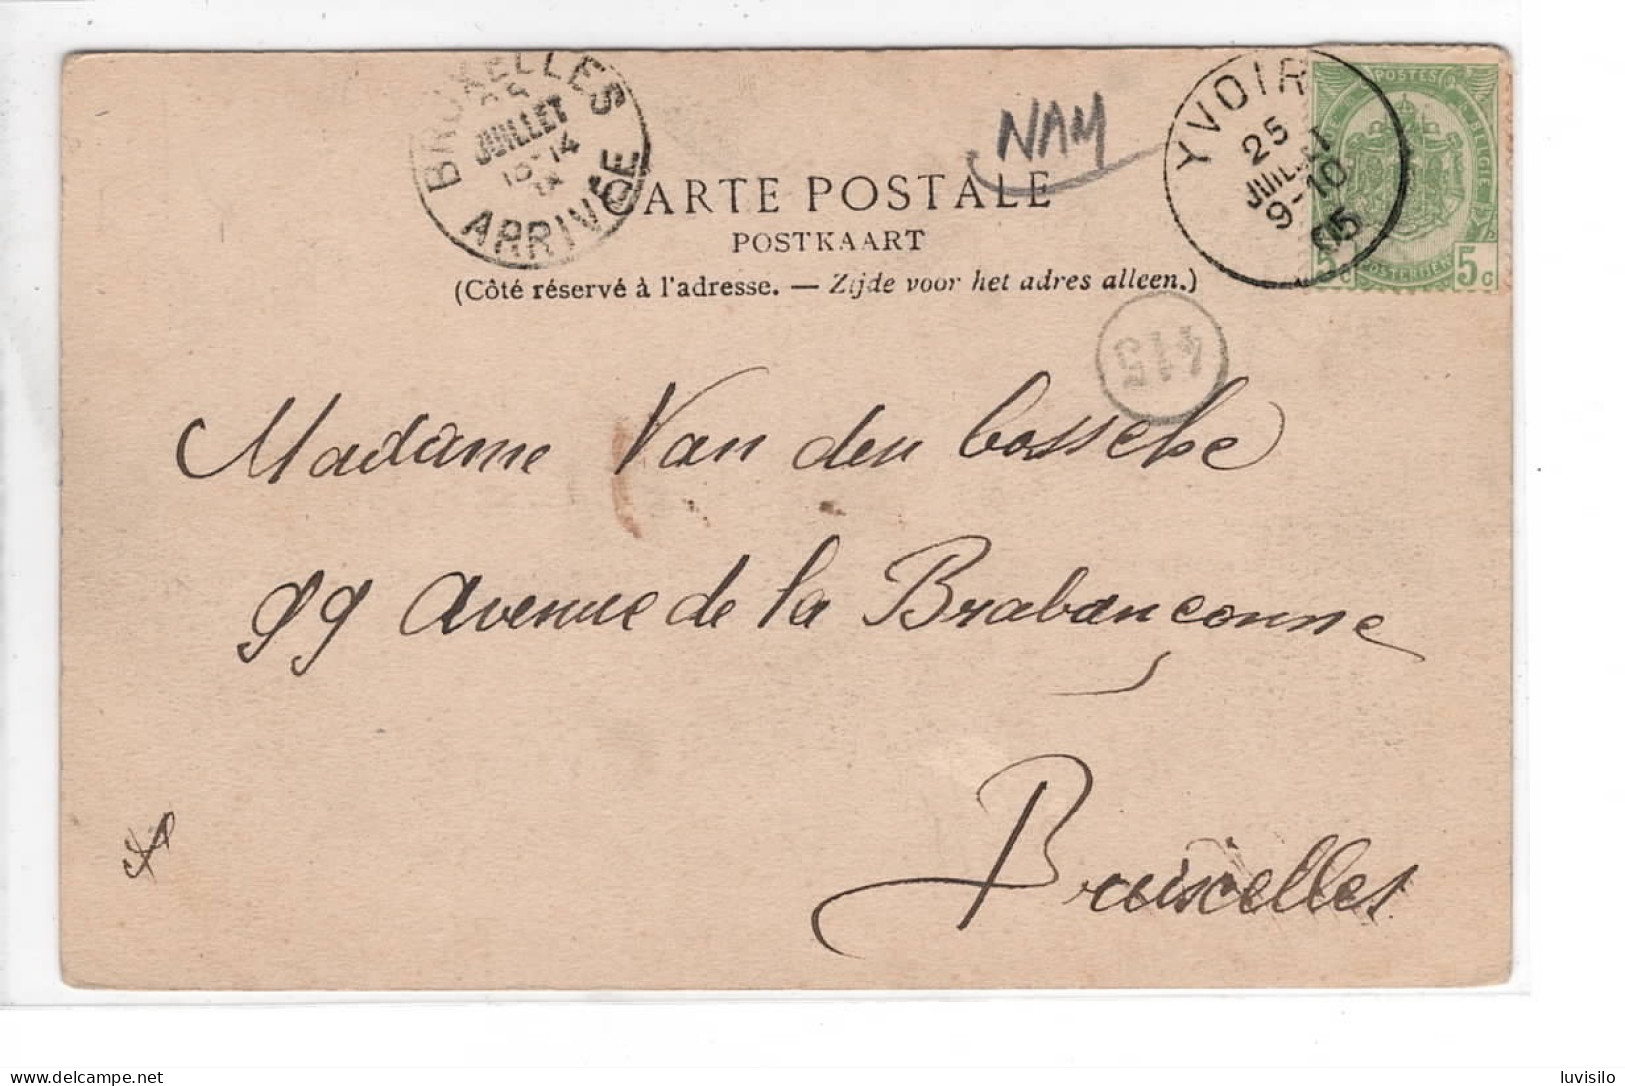 BRUXELLES
25
JUILLET
13-14
ARRIVÉE
NAM
YVOIR
25
JUILLET
9-10
05
POSTES
BELGIE
5c POSTERIJEN 5c
CARTE POSTALE
POSTKAART
(Côté réservé à l'adresse. — Zijde voor het adres alleen.)
415
Madame Van den bossche
99 Avenue de la Brabançonne
Bruxelles
delcampe.net
luvisilo